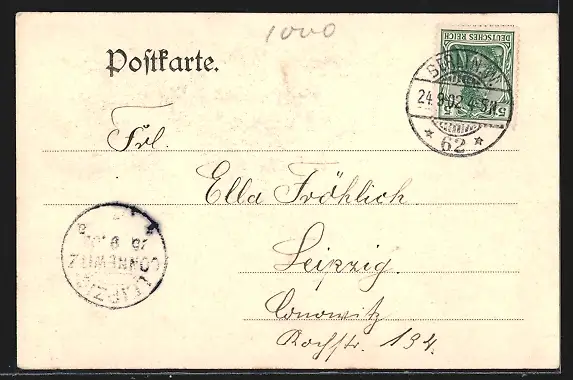 1000
Postkarte.
DEUTSCHES REICH
BERLIN W.
24.9.02.4-5N
* 62 *
5
Frl.
Ella Fröhlich
Leipzig.
Conowitz
Kochstr. 134.
LEIPZIG
CONNEWITZ